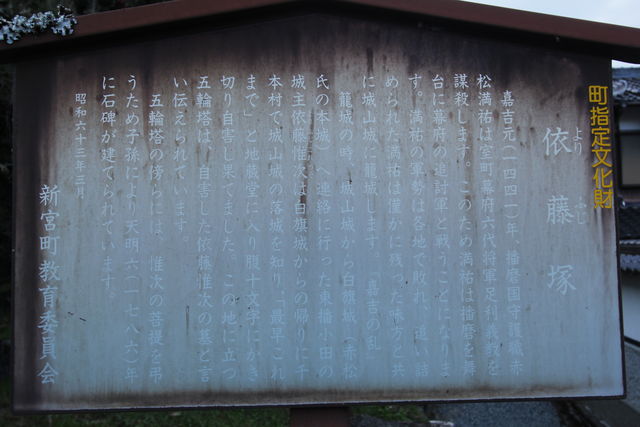 町指定文化財
依藤塚
より ふじ
嘉吉元(一四四一)年、播磨国守護職赤
松満祐は室町幕府六代将軍足利義教を
謀殺します。このため満祐は播磨を舞
台に幕府の追討軍と戦うことになりま
す。満祐の軍勢は各地で敗れ、追い詰
められた満祐は僅かに残った味方と共
に城山城に籠城します。 嘉吉の乱
籠城の 城山城から白旗城(赤松
氏の本城)へ連絡に行った東播小田の
城主依藤惟次は白旗城からの帰りに千
本村で城山城の落城を知り「最早これ
まで」と地蔵堂に入り腹十文字にかき
切り自害し果てました。この地に立つ
五輪塔は、自害した依藤惟次の墓と言
い伝えられています。
五輪塔の傍らには、惟次の菩提を弔
うため子孫により天明六(一七八六)年
に石碑が建てられています。
昭和六十三年三月
新宮町教育委員会